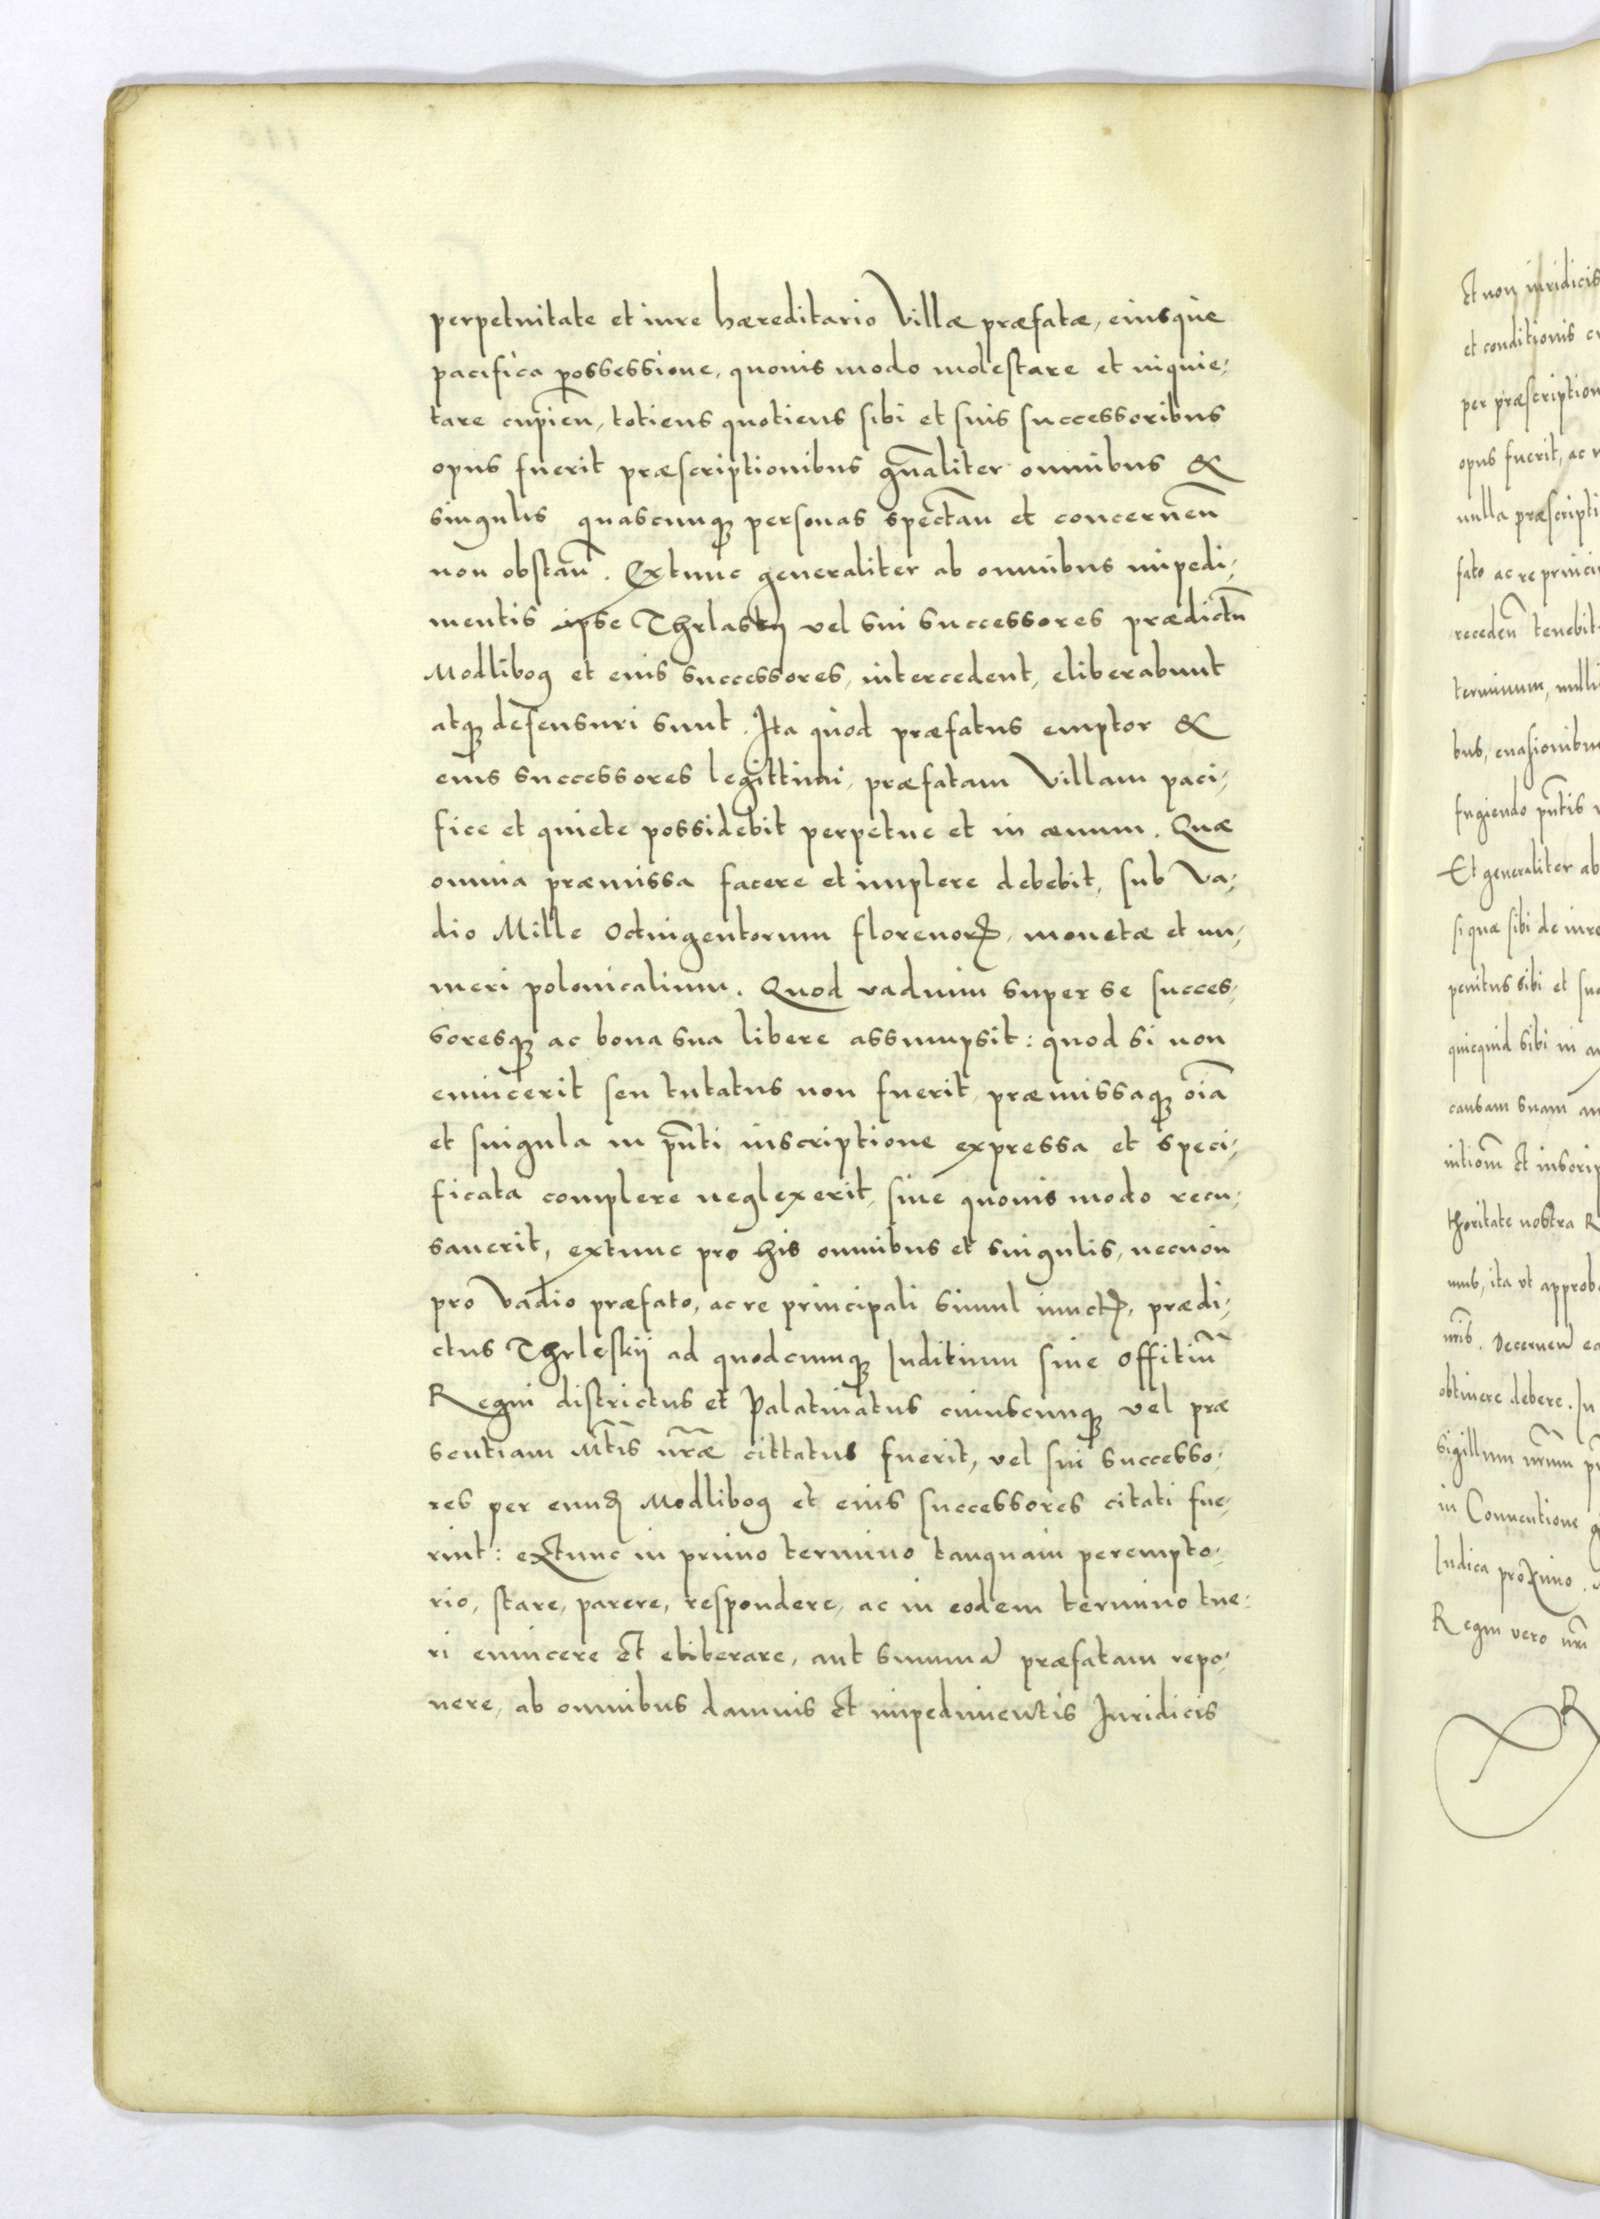 perpetuitate et iure hæreditario Villæ præfatæ, eiusque
pacifica possessione, quouis modo molestare et inquie,
tare cupien, totiens quotiens sibi et suis successoribus
opus fuerit præscriptionibus gn̄aliter omnibus &
singulis quascunq personas spectan̄ et concernen̄
non obstan̄. Extunc generaliter ab omnibus impedi,
mentis ipse Thrlaskij vel sui successores prædictū
Modlibog et eius successores, intercedent, eliberabunt
atq defensuri sunt. Ita quod præfatus emptor &
eius successores legittimi, præfatam Villam paci,
fice et quiete possidebit perpetue et in æuum. Quæ
omnia præmissa facere et implere debebit, sub Va,
dio Mille Octingentorum florenorꝝ, monetæ et nu,
meri polonicalium. Quod vadium super se succes,
soresq ac bona sua libere assumpsit: quod si non
euincerit seu tutatus non fuerit, præmissaq oīa
et singula in pn̄ti inscriptione expressa et speci,
ficata complere neglexerit, siue quouis modo recu,
sauerit, extunc pro his omnibus et singulis, necnon
pro Vadio præfato, ac re principali simul iunctꝝ, prædi,
ctus Thrleskij ad quodcunq Iuditium siue Offitiū
Regni districtus et Palatinatus cuiuscunq vel præ
sentiam Mt̄is nr̄æ cittatus fuerit, vel sui successo,
res per eund Modlibog et eius successores citati fue,
rint: extunc in primo termino tanquam perempto,
rio, stare, parere, respondere, ac in eodem termino tue,
ri euincere et eliberare, aut summā præfatam repo,
nere, ab omnibus damnis et impedimentis Iuridicis
Et non iuridicis
et conditionis
per præscription
opus fuerit, ac
nulla præscripti
fato ac re princi
receden̄ tenebit
terminum, nulli
bus, euasionibus
fugiendo pn̄tis
Et generaliter ab
si quæ sibi de iure
penitus sibi et suc
quicquid sibi in
causam suam
intiom̄ et inscrip
thoritate nostra R
mus, ita vt approb
nr̄is. Decernen
obtinere debere. In
sigillum nr̄um
in Conuentione
Iudica proximo.
Regni vero nr̄i
R